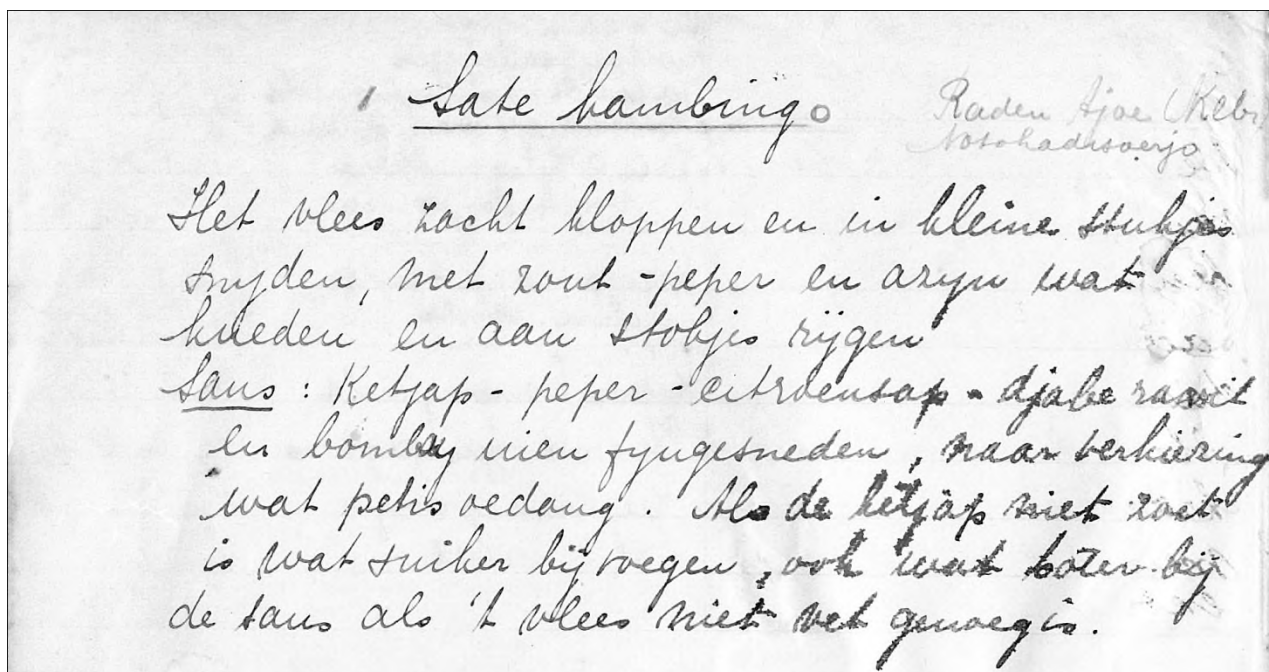 Sate kambing
Raden Ajoe (Reb.
Notohadisoerjo
Het vlees zacht kloppen en in kleine stukjes
snijden, met zout - peper en azijn wat
kneden en aan stokjes rijgen
Saus : Ketjap - peper - citroensap - djabe rawit
en bombay uien fijngesneden, naar verkiezing
wat petis oedang. Als de ketjap niet zoet
is wat suiker bijvoegen, ook wat boter bij
de saus als 't vlees niet vet genoeg is.